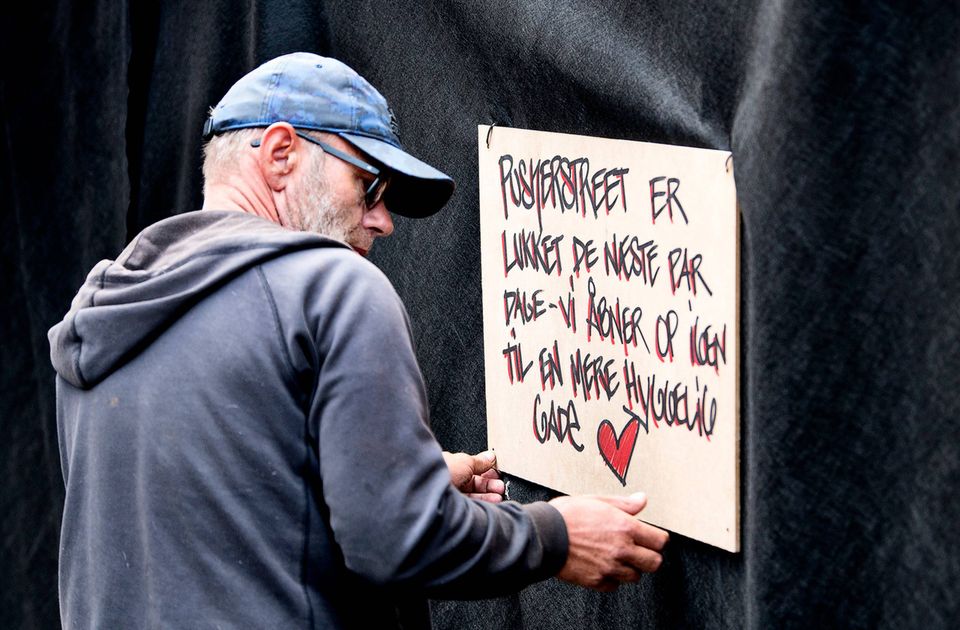 PUSHERSTREET ER
LUKKET DE NÆSTE PAR
DAGE - VI ÅBNER OP IGEN
TIL EN MERE HYGGELIG
GADE